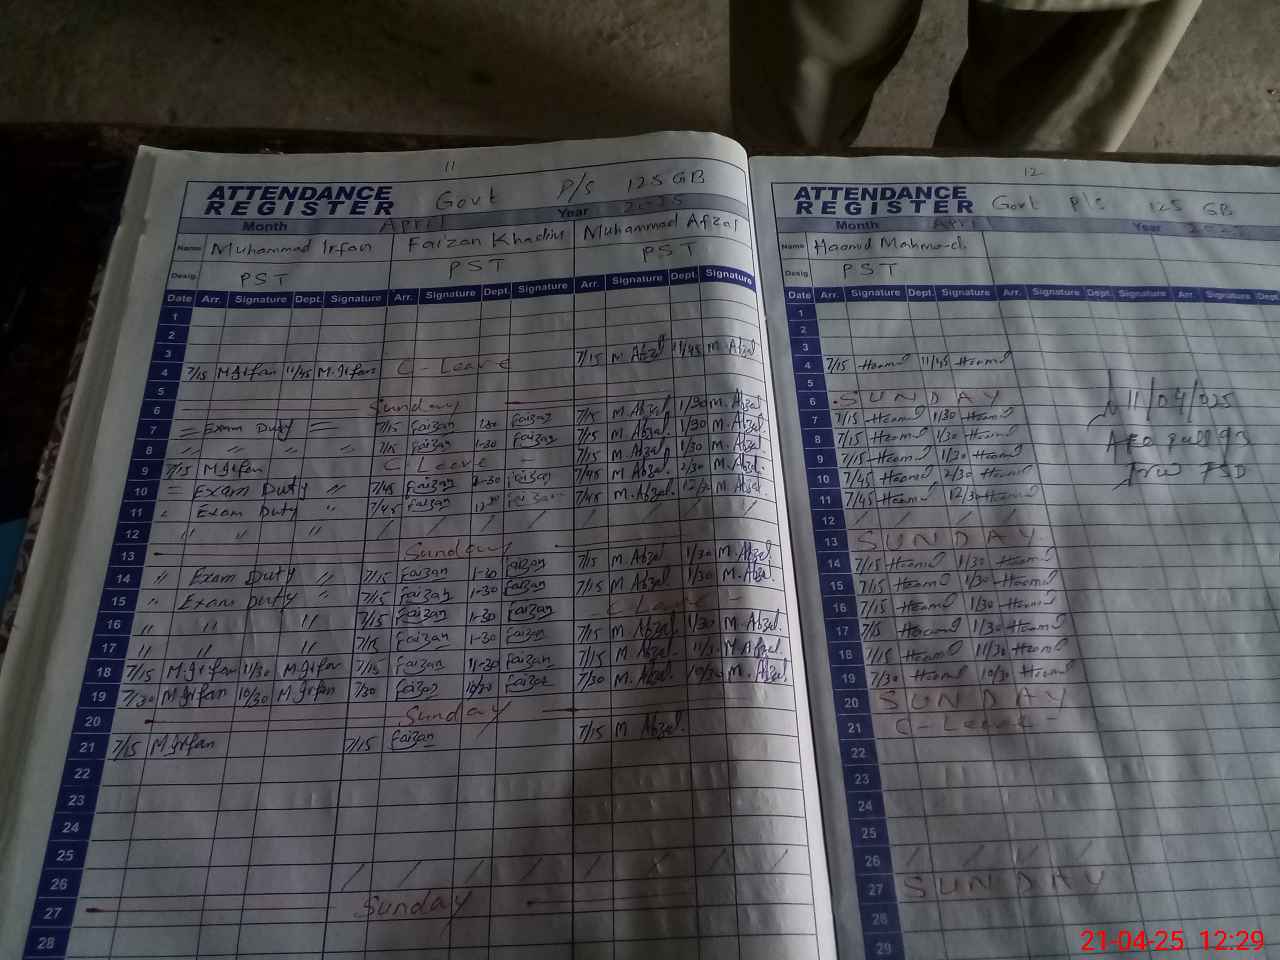 11
ATTENDANCE REGISTER Govt P/s 125 GB
Month April Year 2025
Name Muhammad Irfan Faizan Khadim Muhammad Afzal
Desig. PST PST PST
Date Arr. Signature Dept. Signature Arr. Signature Dept. Signature Arr. Signature Dept. Signature
1
2
3
4 7/15 M.Irfan 11/45 M.Irfan C-Leave 7/15 M.Afzal 11/45 M.Afzal
5
6 Sunday
7 = Exam Duty = 7/15 Faizan 1-30 Faizan 7/15 M.Afzal 1/30 M.Afzal
8 " " " " 7/15 Faizan 1-30 Faizan 7/15 M.Afzal. 1/30 M.Afzal
9 7/15 M.Irfan C-Leave - 7/15 M.Afzal. 1/30 M.Afzal
10 = Exam Duty " 7/45 Faizan 2-30 Faizan 7/45 M.Afzal 2/30 M.Afzal.
11 " Exam Duty " 7/45 Faizan Faizan 7/45 M.Afzal. M.Afzal.
12 " " " / / / / / / / /
13 Sunday
14 " Exam Duty " 7/15 Faizan 1-30 Faizan 7/15 M.Afzal. 1/30 M.Afzal.
15 " Exam Duty " 7/15 Faizan 1-30 Faizan 7/15 M.Afzal. 1/30 M.Afzal.
16 " " " 7/15 Faizan 1-30 Faizan - C Leave -
17 " " " 7/15 Faizan 1-30 Faizan 7/15 M.Afzal. 1/30 M.Afzal.
18 7/15 M.Irfan 11/30 M.Irfan 7/15 Faizan 11-30 Faizan 7/15 M.Afzal. M.Afzal.
19 7/30 M.Irfan 10/30 M.Irfan 7/30 Faizan 10/30 Faizan 7/30 M.Afzal. 10/30 M.Afzal.
20 Sunday
21 7/15 M.Irfan 7/15 Faizan 7/15 M Afzal.
22
23
24
25
26 / / / / / / / /
27 Sunday
28
12
ATTENDANCE REGISTER Govt P/s 125 GB
Month April Year 2025
Name Haamid Mahmood
Desig. PST
Date Arr. Signature Dept. Signature Arr. Signature Dept. Signature Arr. Signature Dept.
1
2
3
4 7/15 Haamd 11/45 Haamd
5
6 SUNDAY
7 7/15 Haamd 1/30 Haamd
8 7/15 Haamd 1/30 Haamd
9 7/15 Haamd 1/30 Haamd
10 7/45 Haamd 2/30 Haamd
11 7/45 Haamd 12/30 Haamd
12 / / / /
13 SUNDAY
14 7/15 Haamd 1/30 Haamd
15 7/15 Haamd 1/30 Haamd
16 7/15 Haamd 1/30 Haamd
17 7/15 Haamd 1/30 Haamd
18 7/15 Haamd 11/30 Haamd
19 7/30 Haamd 10/30 Haamd
20 SUNDAY
21 C-Leave-
22
23
24
25
26 / / / /
27 SUNDAY
28
29
11/04/025
AEO
FSD
21-04-25 12:29